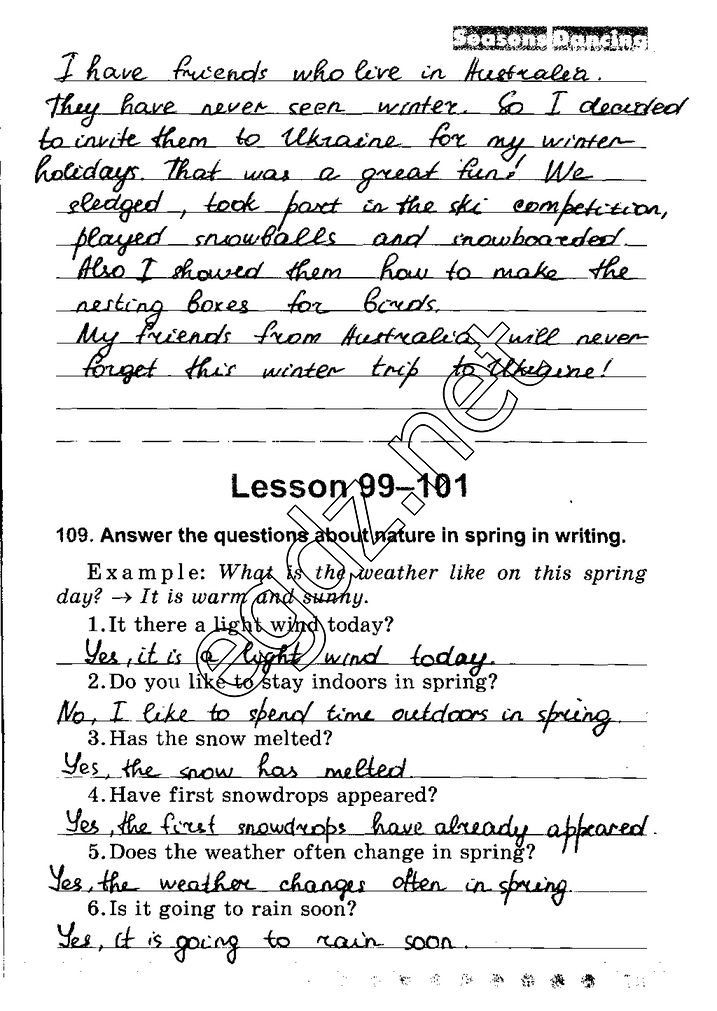 Seasons Dancing
I have friends who live in Australia.
They have never seen winter. So I decided
to invite them to Ukraine for my winter
holidays. That was a great fun! We
sledged, took part in the ski competition,
played snowballs and snowboarded.
Also I showed them how to make the
nesting boxes for birds.
My friends from Australia will never
forget this winter trip to Ukraine!
Lesson 99–101
109. Answer the questions about nature in spring in writing.
Example: What is the weather like on this spring
day? → It is warm and sunny.
1. It there a light wind today?
Yes, it is a light wind today.
2. Do you like to stay indoors in spring?
No, I like to spend time outdoors in spring.
3. Has the snow melted?
Yes, the snow has melted
4. Have first snowdrops appeared?
Yes, the first snowdrops have already appeared.
5. Does the weather often change in spring?
Yes, the weather changes often in spring.
6. Is it going to rain soon?
Yes, it is going to rain soon.
egdz.net